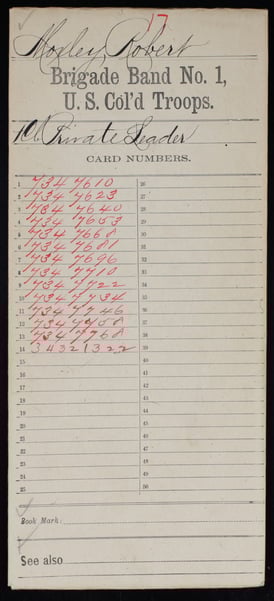 17
Moxley, Robert
Brigade Band No. 1,
U. S. Col'd Troops.
Private Leader
CARD NUMBERS.
1 734 7610 26
2 734 7623 27
3 734 7640 28
4 734 7653 29
5 734 7668 30
6 734 7681 31
7 734 7696 32
8 734 7710 33
9 734 7722 34
10 734 7734 35
11 734 7746 36
12 734 7758 37
13 734 7768 38
14 34321322 39
15 40
16 41
17 42
18 43
19 44
20 45
21 46
22 47
23 48
24 49
25 50
Book Mark:
See also